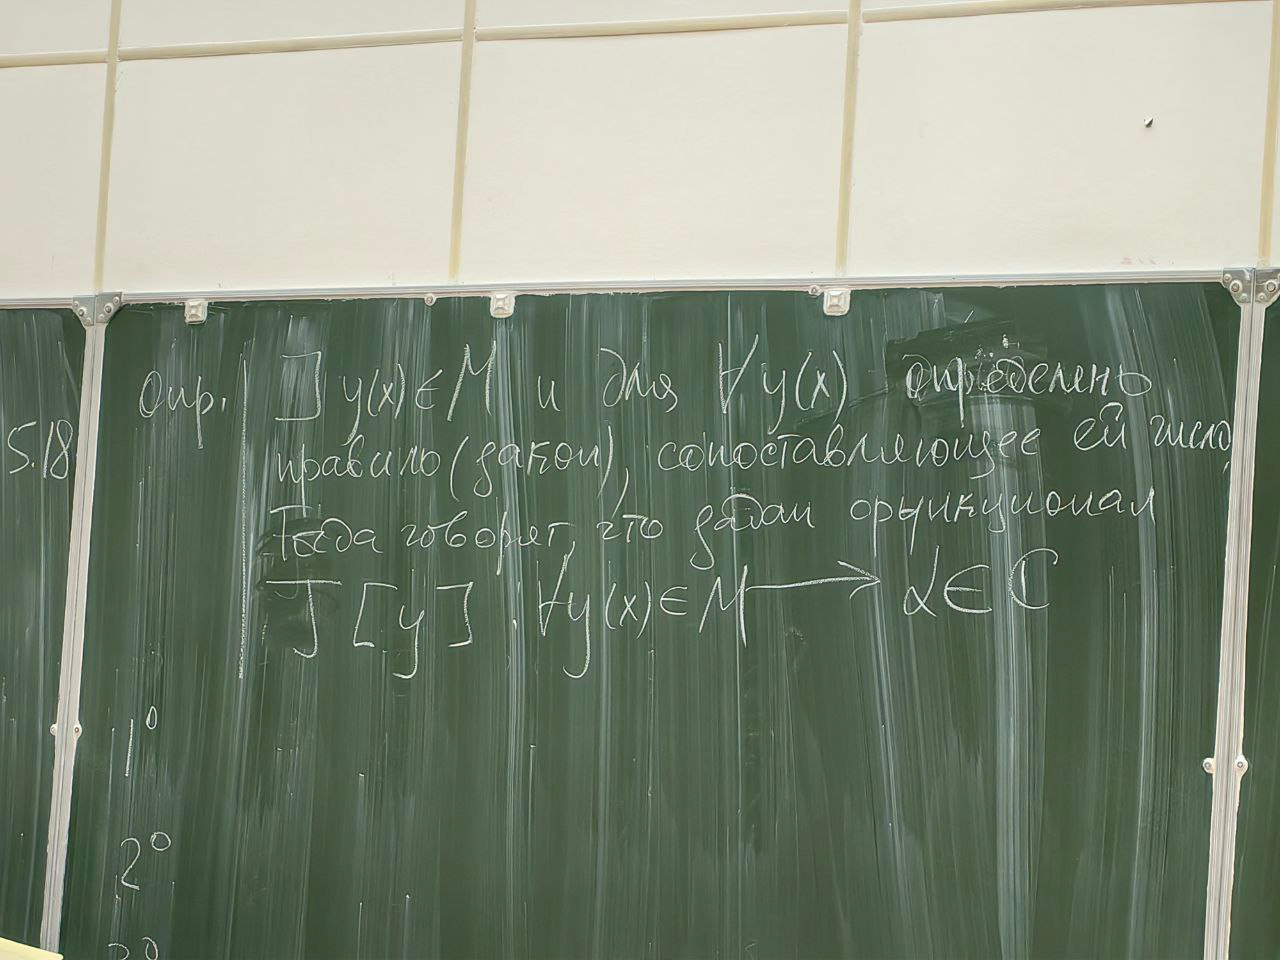 5.18
Опр. ] y(x) ∈ M и для ∀ y(x) определено
правило (закон), сопоставляющее ей число,
Тогда говорят, что задан функционал
J [y] . ∀y(x) ∈ M ⟶ α ∈ C
1°
2°
3°